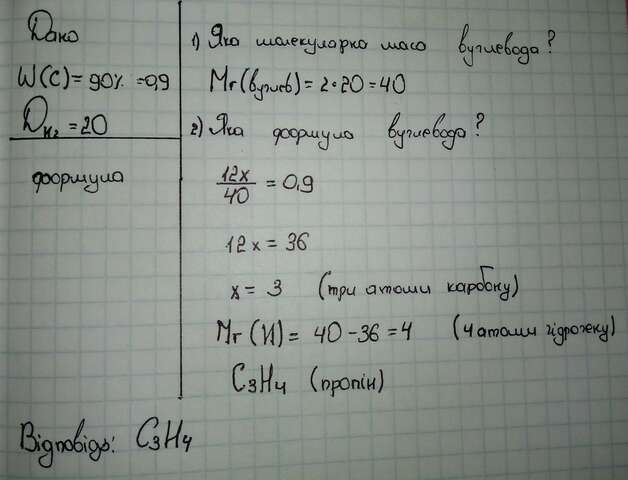 Дано
W(C)=90%=0,9
D H2 =20
формула
1) Яка молекулярна маса вуглевода?
Mr(вуглев)=2•20=40
2) Яка формула вуглевода?
12x/40 = 0,9
12x = 36
x = 3 (три атоми карбону)
Mr(H)= 40-36=4 (4 атоми гідрогену)
C3H4 (пропін)
Відповідь: C3H4